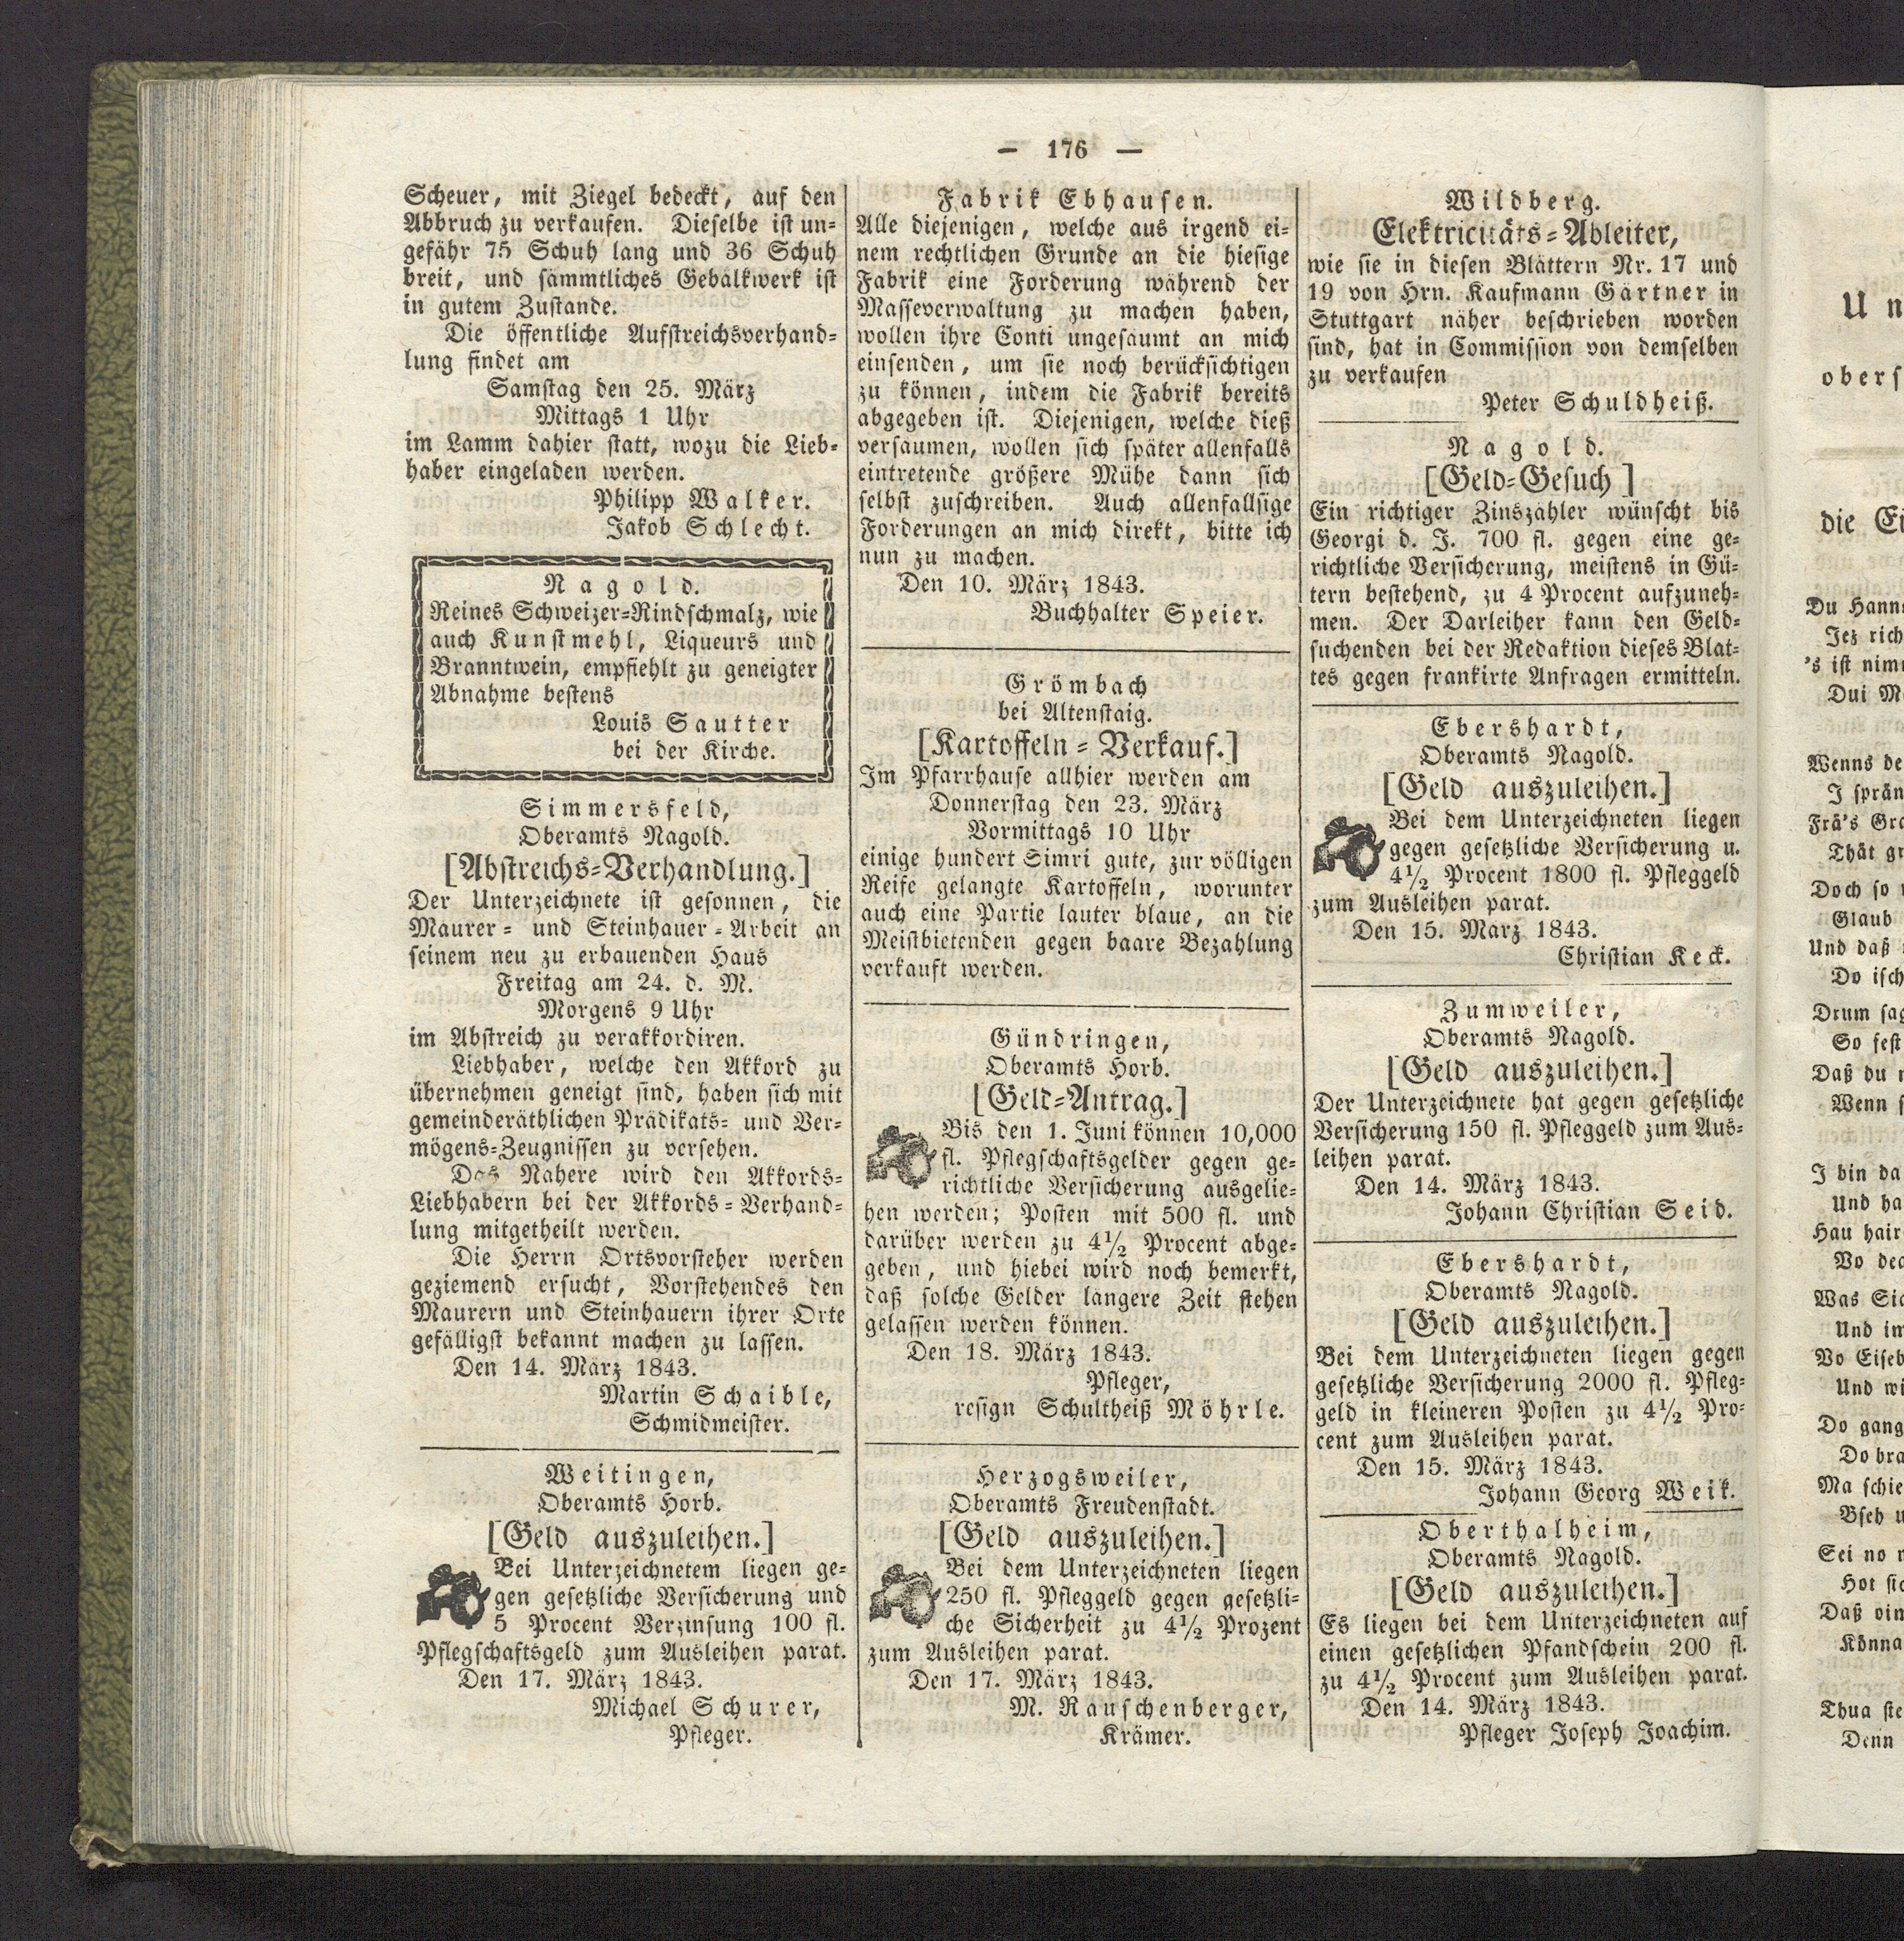 — 176 —
Scheuer, mit Ziegel bedeckt, auf den
Abbruch zu verkaufen. Dieselbe ist un-
gefähr 75 Schuh lang und 36 Schuh
breit, und sämmtliches Gebälkwerk ist
in gutem Zustande.
Die öffentliche Aufstreichsverhand-
lung findet am
Samstag den 25. März
Mittags 1 Uhr
im Lamm dahier statt, wozu die Lieb-
haber eingeladen werden.
Philipp Walker.
Jakob Schlecht.
Nagold.
Reines Schweizer-Rindschmalz, wie
auch Kunstmehl, Liqueurs und
Branntwein, empfiehlt zu geneigter
Abnahme bestens
Louis Sautter
bei der Kirche.
Simmersfeld,
Oberamts Nagold.
[Abstreichs-Verhandlung.]
Der Unterzeichnete ist gesonnen, die
Maurer- und Steinhauer-Arbeit an
seinem neu zu erbauenden Haus
Freitag am 24. d. M.
Morgens 9 Uhr
im Abstreich zu verakkordiren.
Liebhaber, welche den Akkord zu
übernehmen geneigt sind, haben sich mit
gemeinderäthlichen Prädikats- und Ver-
mögens-Zeugnissen zu versehen.
Das Nähere wird den Akkords-
Liebhabern bei der Akkords-Verhand-
lung mitgetheilt werden.
Die Herrn Ortsvorsteher werden
geziemend ersucht, Vorstehendes den
Maurern und Steinhauern ihrer Orte
gefälligst bekannt machen zu lassen.
Den 14. März 1843.
Martin Schaible,
Schmidmeister.
Weitingen,
Oberamts Horb.
[Geld auszuleihen.]
Bei Unterzeichnetem liegen ge-
gen gesetzliche Versicherung und
5 Procent Verzinsung 100 fl.
Pflegschaftsgeld zum Ausleihen parat.
Den 17. März 1843.
Michael Schurer,
Pfleger.
Fabrik Ebhausen.
Alle diejenigen, welche aus irgend ei-
nem rechtlichen Grunde an die hiesige
Fabrik eine Forderung während der
Masseverwaltung zu machen haben,
wollen ihre Conti ungesäumt an mich
einsenden, um sie noch berücksichtigen
zu können, indem die Fabrik bereits
abgegeben ist. Diejenigen, welche dieß
versäumen, wollen sich später allenfalls
eintretende größere Mühe dann sich
selbst zuschreiben. Auch allenfallsige
Forderungen an mich direkt, bitte ich
nun zu machen.
Den 10. März 1843.
Buchhalter Speier.
Grömbach
bei Altenstaig.
[Kartoffeln-Verkauf.]
Im Pfarrhause allhier werden am
Donnerstag den 23. März
Vormittags 10 Uhr
einige hundert Simri gute, zur völligen
Reife gelangte Kartoffeln, worunter
auch eine Partie lauter blaue, an die
Meistbietenden gegen baare Bezahlung
verkauft werden.
Gündringen,
Oberamts Horb.
[Geld-Antrag.]
Bis den 1. Juni können 10,000
fl. Pflegschaftsgelder gegen ge-
richtliche Versicherung ausgelie-
hen werden; Posten mit 500 fl. und
darüber werden zu 4½ Procent abge-
geben, und hiebei wird noch bemerkt,
daß solche Gelder längere Zeit stehen
gelassen werden können.
Den 18. März 1843.
Pfleger,
resign Schultheiß Möhrle.
Herzogsweiler,
Oberamts Freudenstadt.
[Geld auszuleihen.]
Bei dem Unterzeichneten liegen
250 fl. Pfleggeld gegen gesetzli-
che Sicherheit zu 4½ Prozent
zum Ausleihen parat.
Den 17. März 1843.
M. Rauschenberger,
Krämer.
Wildberg.
Elektricitäts-Ableiter,
wie sie in diesen Blättern Nr. 17 und
19 von Hrn. Kaufmann Gärtner in
Stuttgart näher beschrieben worden
sind, hat in Commission von demselben
zu verkaufen
Peter Schuldheiß.
Nagold.
[Geld-Gesuch]
Ein richtiger Zinszahler wünscht bis
Georgi d. J. 700 fl. gegen eine ge-
richtliche Versicherung, meistens in Gü-
tern bestehend, zu 4 Procent aufzuneh-
men. Der Darleiher kann den Geld-
suchenden bei der Redaktion dieses Blat-
tes gegen frankirte Anfragen ermitteln.
Ebershardt,
Oberamts Nagold.
[Geld auszuleihen.]
Bei dem Unterzeichneten liegen
gegen gesetzliche Versicherung u.
4½ Procent 1800 fl. Pfleggeld
zum Ausleihen parat.
Den 15. März 1843.
Christian Keck.
Zumweiler,
Oberamts Nagold.
[Geld auszuleihen.]
Der Unterzeichnete hat gegen gesetzliche
Versicherung 150 fl. Pfleggeld zum Aus-
leihen parat.
Den 14. März 1843.
Johann Christian Seid.
Ebershardt,
Oberamts Nagold.
[Geld auszuleihen.]
Bei dem Unterzeichneten liegen gegen
gesetzliche Versicherung 2000 fl. Pfleg-
geld in kleineren Posten zu 4½ Pro-
cent zum Ausleihen parat.
Den 15. März 1843.
Johann Georg Weik.
Oberthalheim,
Oberamts Nagold.
[Geld auszuleihen.]
Es liegen bei dem Unterzeichneten auf
einen gesetzlichen Pfandschein 200 fl.
zu 4½ Procent zum Ausleihen parat.
Den 14. März 1843.
Pfleger Joseph Joachim.
die
Wenns
Doch so
Und daß
Do isch
So fest
Daß du
Wenn
I bin da
Und
Und
Do gang
Sei no
Daß
Könna
Thua
Denn